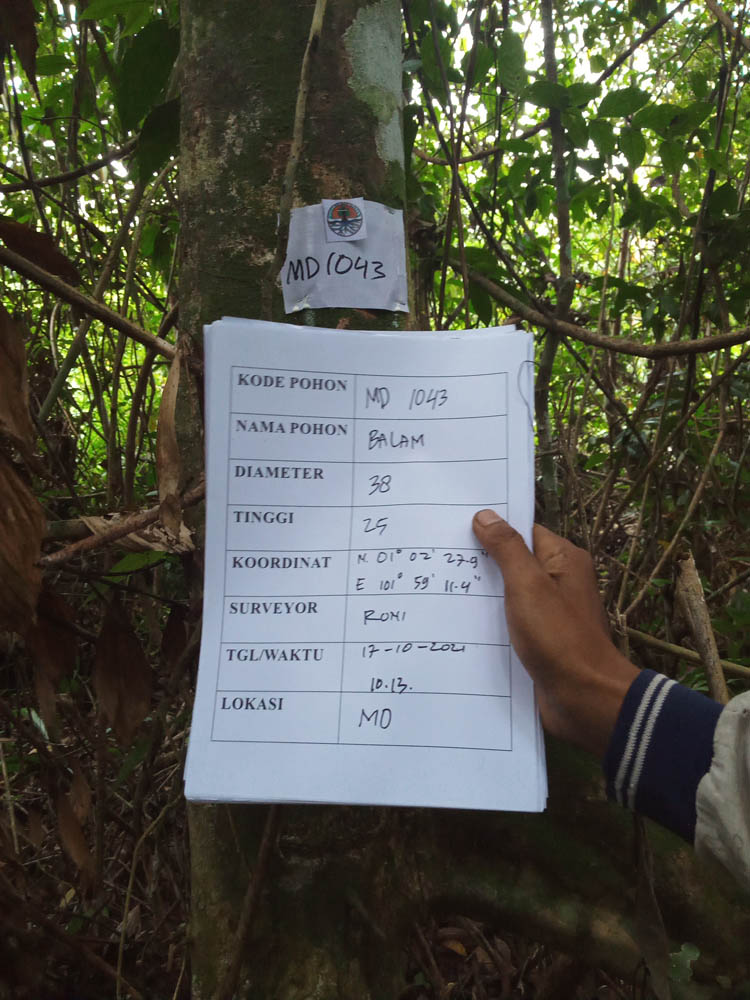 MD 1043
KODE POHON MD 1043
NAMA POHON BALAM
DIAMETER 38
TINGGI 25
KOORDINAT N. 01° 02' 27.9"
E 101° 59' 11.4"
SURVEYOR ROMI
TGL/WAKTU 17-10-2021
10.13.
LOKASI MD